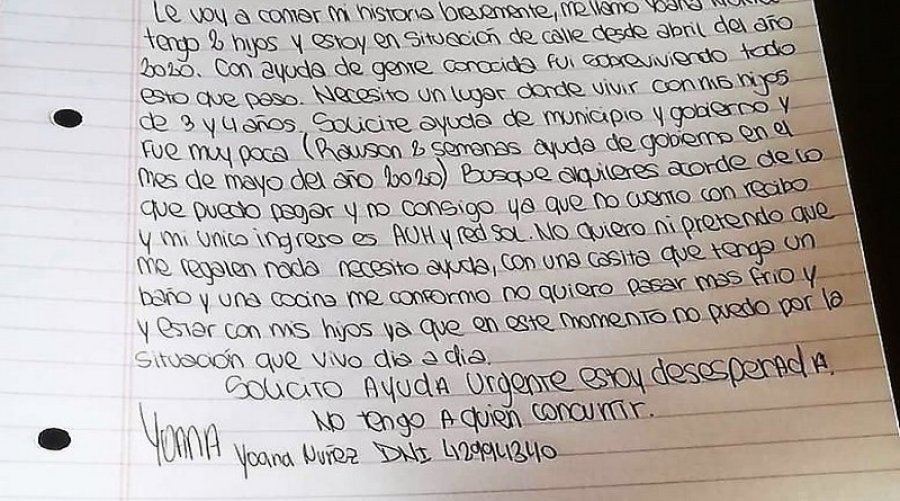 Le voy a contar mi historia brevemente, me llamo Yoana
tengo 2 hijos y estoy en situación de calle desde abril del año
2020. Con ayuda de gente conocida fui sobreviviendo todo
esto que paso. Necesito un lugar donde vivir con mis hijos
de 3 y 4 años. Solicite ayuda de municipio y gobierno y
fue muy poca (Rawson 2 semanas ayuda de gobierno en el
mes de mayo del año 2020) Busque alquileres acorde de lo
que puedo pagar y no consigo ya que no cuento con recibo
y mi unico ingreso es AUH y red sol. No quiero ni pretendo que
me regalen nada necesito ayuda, con una casita que tenga un
baño y una cocina me conformo no quiero pasar mas frio y
y estar con mis hijos ya que en este momento no puedo por la
situación que vivo dia a dia.
Solicito Ayuda Urgente estoy desesperada.
No tengo A quien concurrir.
YOANA
Yoana Nuñez DNI